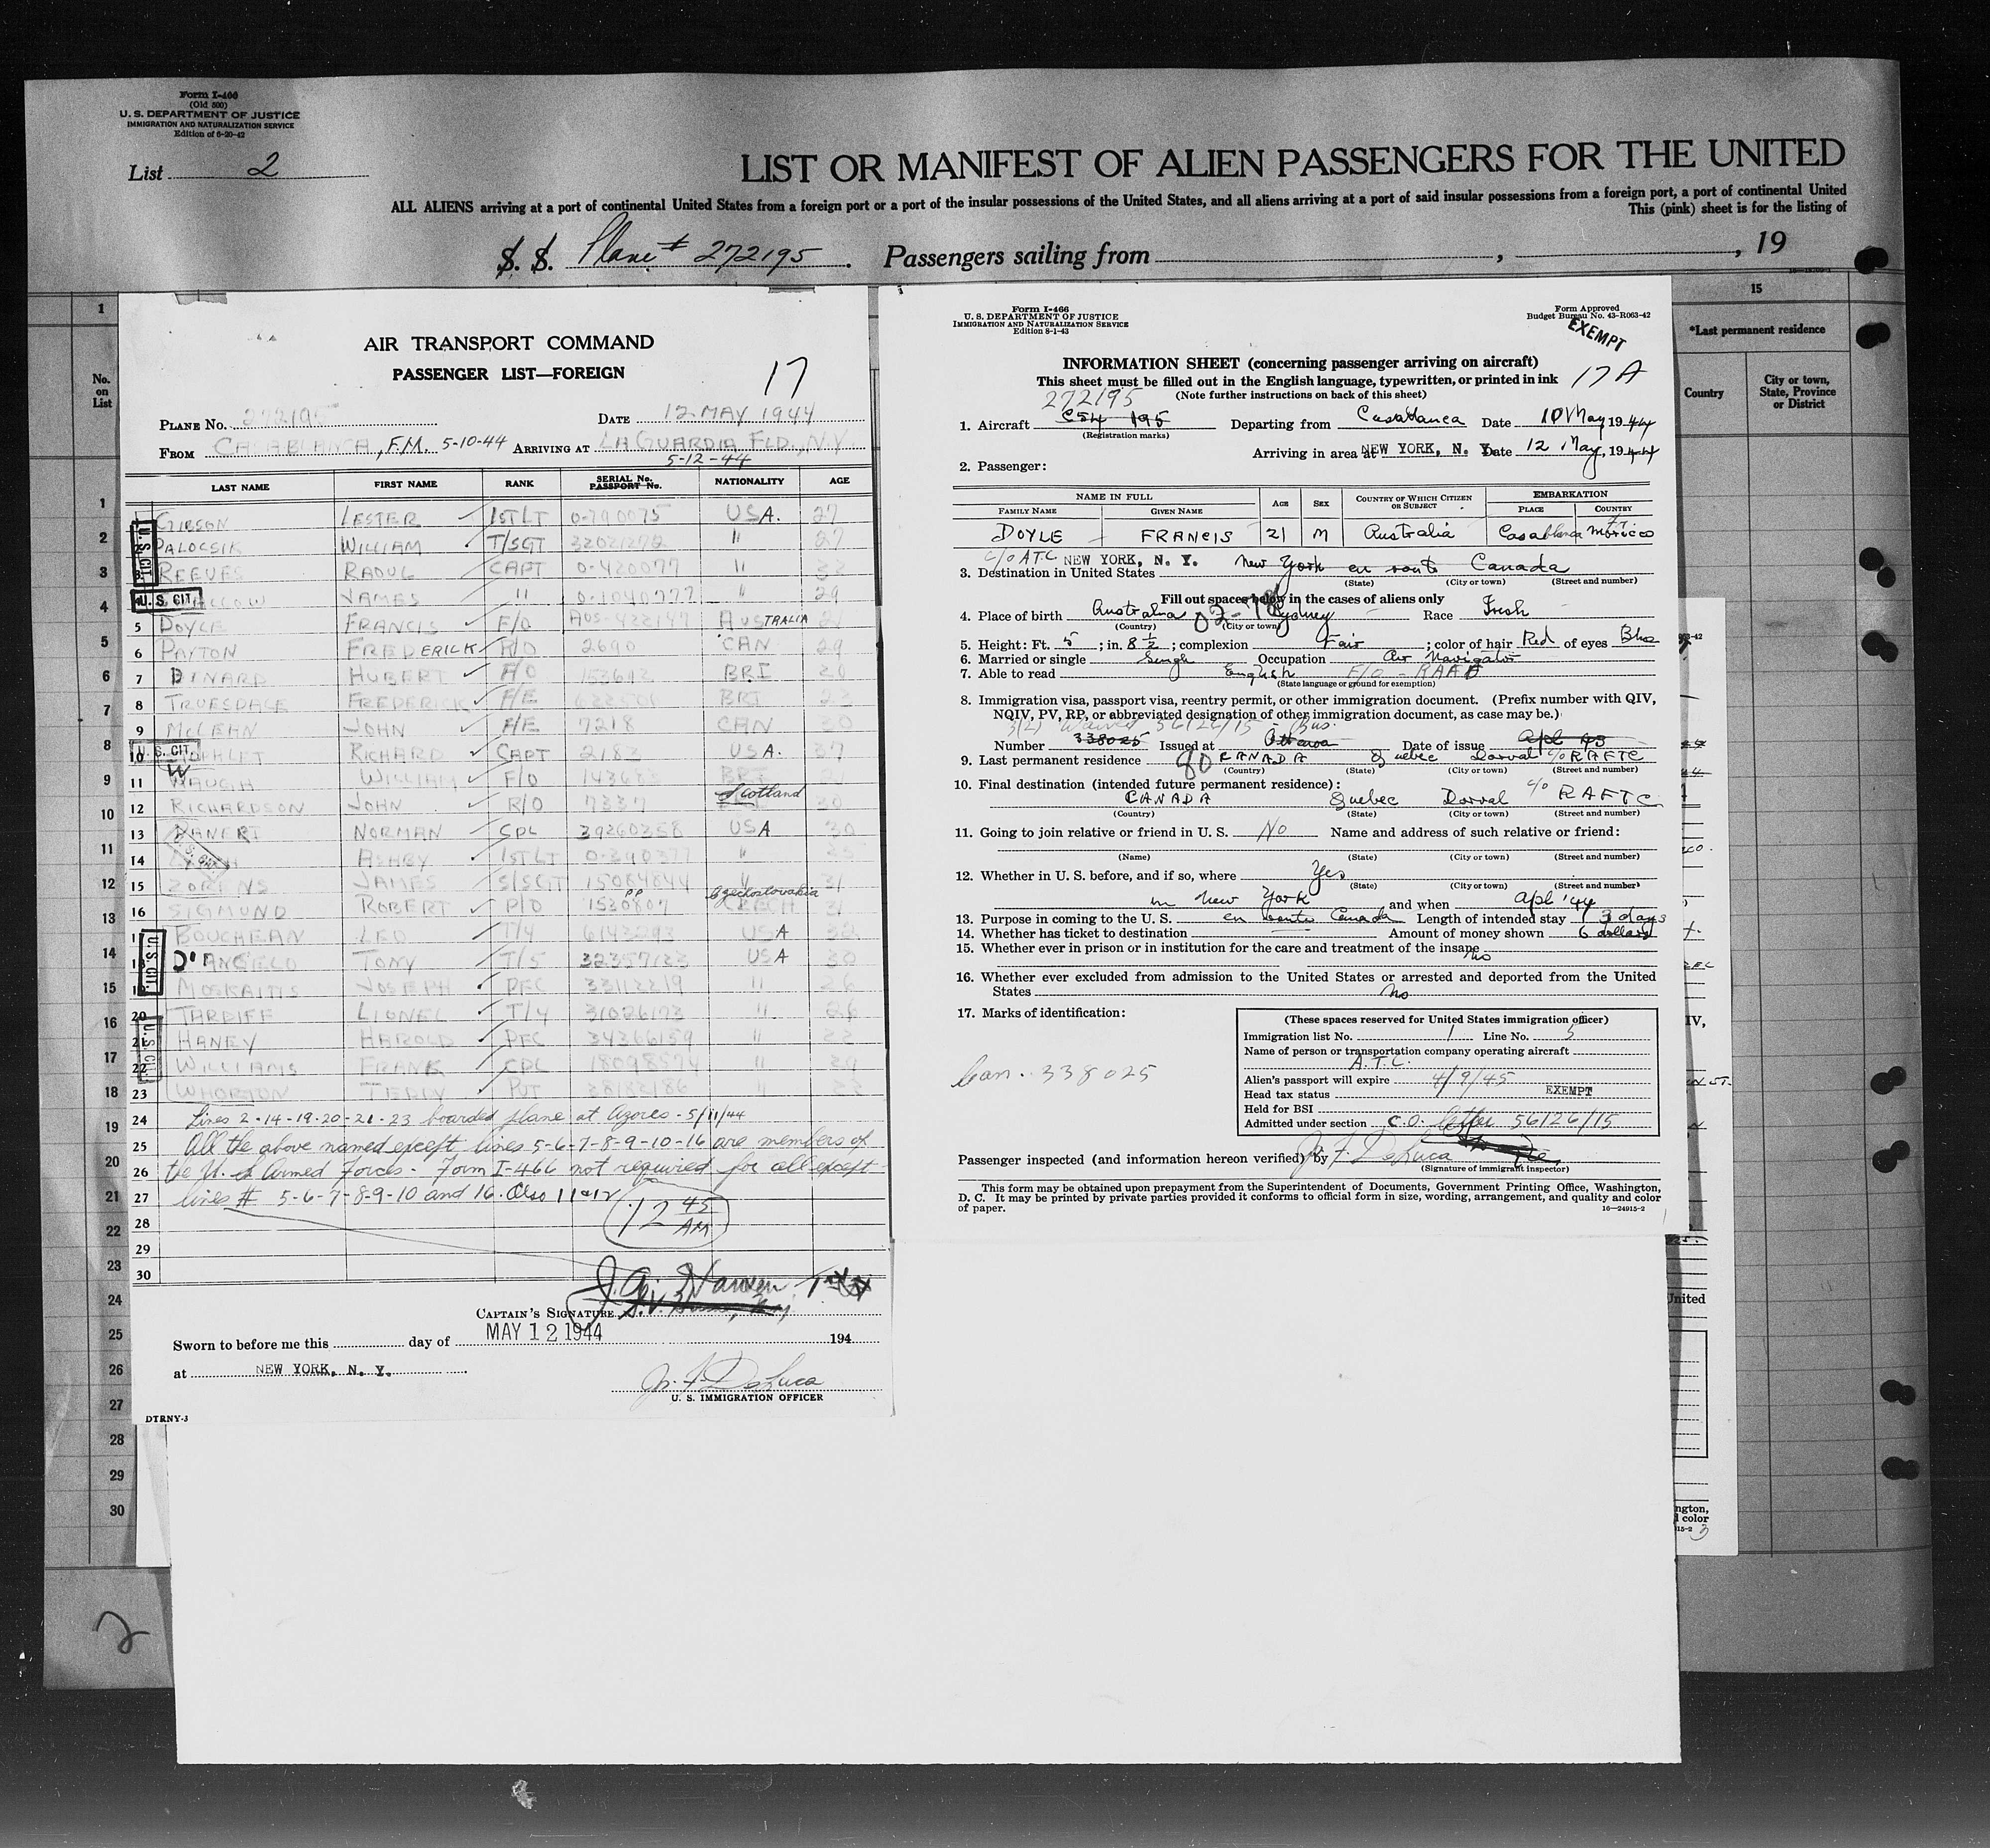 Form I-466
(Old 500)
U. S. DEPARTMENT OF JUSTICE
IMMIGRATION AND NATURALIZATION SERVICE
Edition of 6-20-42
List 2
LIST OR MANIFEST OF ALIEN PASSENGERS FOR THE UNITED
ALL ALIENS arriving at a port of continental United States from a foreign port or a port of the insular possessions of the United States, and all aliens arriving at a port of said insular possessions from a foreign port, a port of continental United
This (pink) sheet is for the listing of
S. S. Plane # 272195. Passengers sailing from , , 19
1
15
No.
on
List
*Last permanent residence
Country
City or town,
State, Province
or District
AIR TRANSPORT COMMAND
PASSENGER LIST—FOREIGN
17
PLANE No. 272195 DATE 12 MAY 1944
FROM CASABLANCA, F.M. 5-10-44 ARRIVING AT LA GUARDIA FLD., N.Y.
5-12-44
LAST NAME FIRST NAME RANK SERIAL No. PASSPORT No. NATIONALITY AGE
GIBSON LESTER 1ST LT 0-790075 USA. 27
PALOCSIK WILLIAM T/SGT 32021272 " 27
REEVES RAOUL CAPT 0-420077 " 32
4 JAMES " 0-1040777 " 29
5 DOYLE FRANCIS F/O AUS-422197 AUSTRALIA 21
6 PAYTON FREDERICK R/O 2690 CAN 29
7 DINARD HUBERT F/O BRI
8 TRUESDALE FREDERICK F/E BRI 23
9 MCLEAN JOHN F/E 7218 CAN 30
10 RICHARD CAPT 2183 USA. 37
11 WAUGH WILLIAM F/O BRI 21
12 RICHARDSON JOHN R/O 7337 Scotland 30
13 DANERI NORMAN CPL 39260358 USA 30
14 ASHBY 1ST LT 0-390377 "
15 ZORENS JAMES S/SGT 15084844 " 31
16 SIGMUND ROBERT P/O 1530807 Czechoslovakia CZECH 31
BOUCHEAN LEO T/4 6143293 USA 32
D'ANGELO TONY T/5 32357133 USA 30
MOSKAITIS JOSEPH PFC 33112219 " 26
20 TARDIFF LIONEL T/4 31026173 " 26
21 HANEY HAROLD PFC 34366159 " 22
22 WILLIAMS FRANK CPL 18098574 "
23 WHORTON TERLY PVT 38182186 "
U.S. CIT.
U. S. CIT.
U. S. CIT.
U.S. CIT.
U.S. CIT.
24 Lines 2-14-19-20-21-23 boarded plane at Azores - 5/11/44
25 All the above named except lines 5-6-7-8-9-10-16 are members of
26 the U. S. Armed forces - form I-466 not required for all except
27 lines # 5-6-7-8-9-10 and 16. Also 11 & 12
28
12 45 AM
29
30
CAPTAIN'S SIGNATURE
Sworn to before me this day of MAY 12 1944 194
at NEW YORK, N. Y.
U. S. IMMIGRATION OFFICER
DTRNY-3
Form I-466
U. S. DEPARTMENT OF JUSTICE
IMMIGRATION AND NATURALIZATION SERVICE
Edition 8-1-43
Form Approved
Budget Bureau No. 43-R063-42
EXEMPT
INFORMATION SHEET (concerning passenger arriving on aircraft)
This sheet must be filled out in the English language, typewritten, or printed in ink 17A
(Note further instructions on back of this sheet)
272195
1. Aircraft C54 195 Departing from Casablanca Date 10 May 1944
(Registration marks)
Arriving in area at NEW YORK, N. Y. Date 12 May, 1944
2. Passenger:
NAME IN FULL AGE SEX COUNTRY OF WHICH CITIZEN OR SUBJECT EMBARKATION
FAMILY NAME GIVEN NAME PLACE COUNTRY
DOYLE FRANCIS 21 M Australia Casablanca Fr. Morocco
c/o A.T.C. NEW YORK, N. Y. New York en route Canada
3. Destination in United States
(State) (City or town) (Street and number)
Fill out spaces below in the cases of aliens only
4. Place of birth Australia Sydney Race Irish
(Country) (City or town)
5. Height: Ft. 5 ; in. 8 1/2 ; complexion Fair ; color of hair Red of eyes Blue
6. Married or single Single Occupation Air Navigator
7. Able to read English F/O - RAAF
(State language or ground for exemption)
8. Immigration visa, passport visa, reentry permit, or other immigration document. (Prefix number with QIV,
NQIV, PV, RP, or abbreviated designation of other immigration document, as case may be.)
3(2) Waived 56126/15 Bus.
Number 338025 Issued at Ottawa Date of issue Apl 43
9. Last permanent residence CANADA Quebec Dorval c/o RAFTC
(Country) (State) (City or town) (Street and number)
10. Final destination (intended future permanent residence):
CANADA Quebec Dorval c/o RAFTC
(Country) (State) (City or town) (Street and number)
11. Going to join relative or friend in U. S. No Name and address of such relative or friend:
(Name) (State) (City or town) (Street and number)
12. Whether in U. S. before, and if so, where Yes
(State) (City or town) (Street and number)
in New York and when Apl '44
13. Purpose in coming to the U. S. en route Canada Length of intended stay 3 days
14. Whether has ticket to destination Amount of money shown 6 dollars
15. Whether ever in prison or in institution for the care and treatment of the insane No
16. Whether ever excluded from admission to the United States or arrested and deported from the United
States No
17. Marks of identification:
Can. 338025
(These spaces reserved for United States immigration officer)
Immigration list No. 1 Line No. 5
Name of person or transportation company operating aircraft
A.T.C.
Alien's passport will expire 4/9/45
Head tax status EXEMPT
Held for BSI
Admitted under section C.O. letter 56126/15
Passenger inspected (and information hereon verified) by
(Signature of immigrant inspector)
This form may be obtained upon prepayment from the Superintendent of Documents, Government Printing Office, Washington,
D. C. It may be printed by private parties provided it conforms to official form in size, wording, arrangement, and quality and color
of paper.
16—24915-2
2